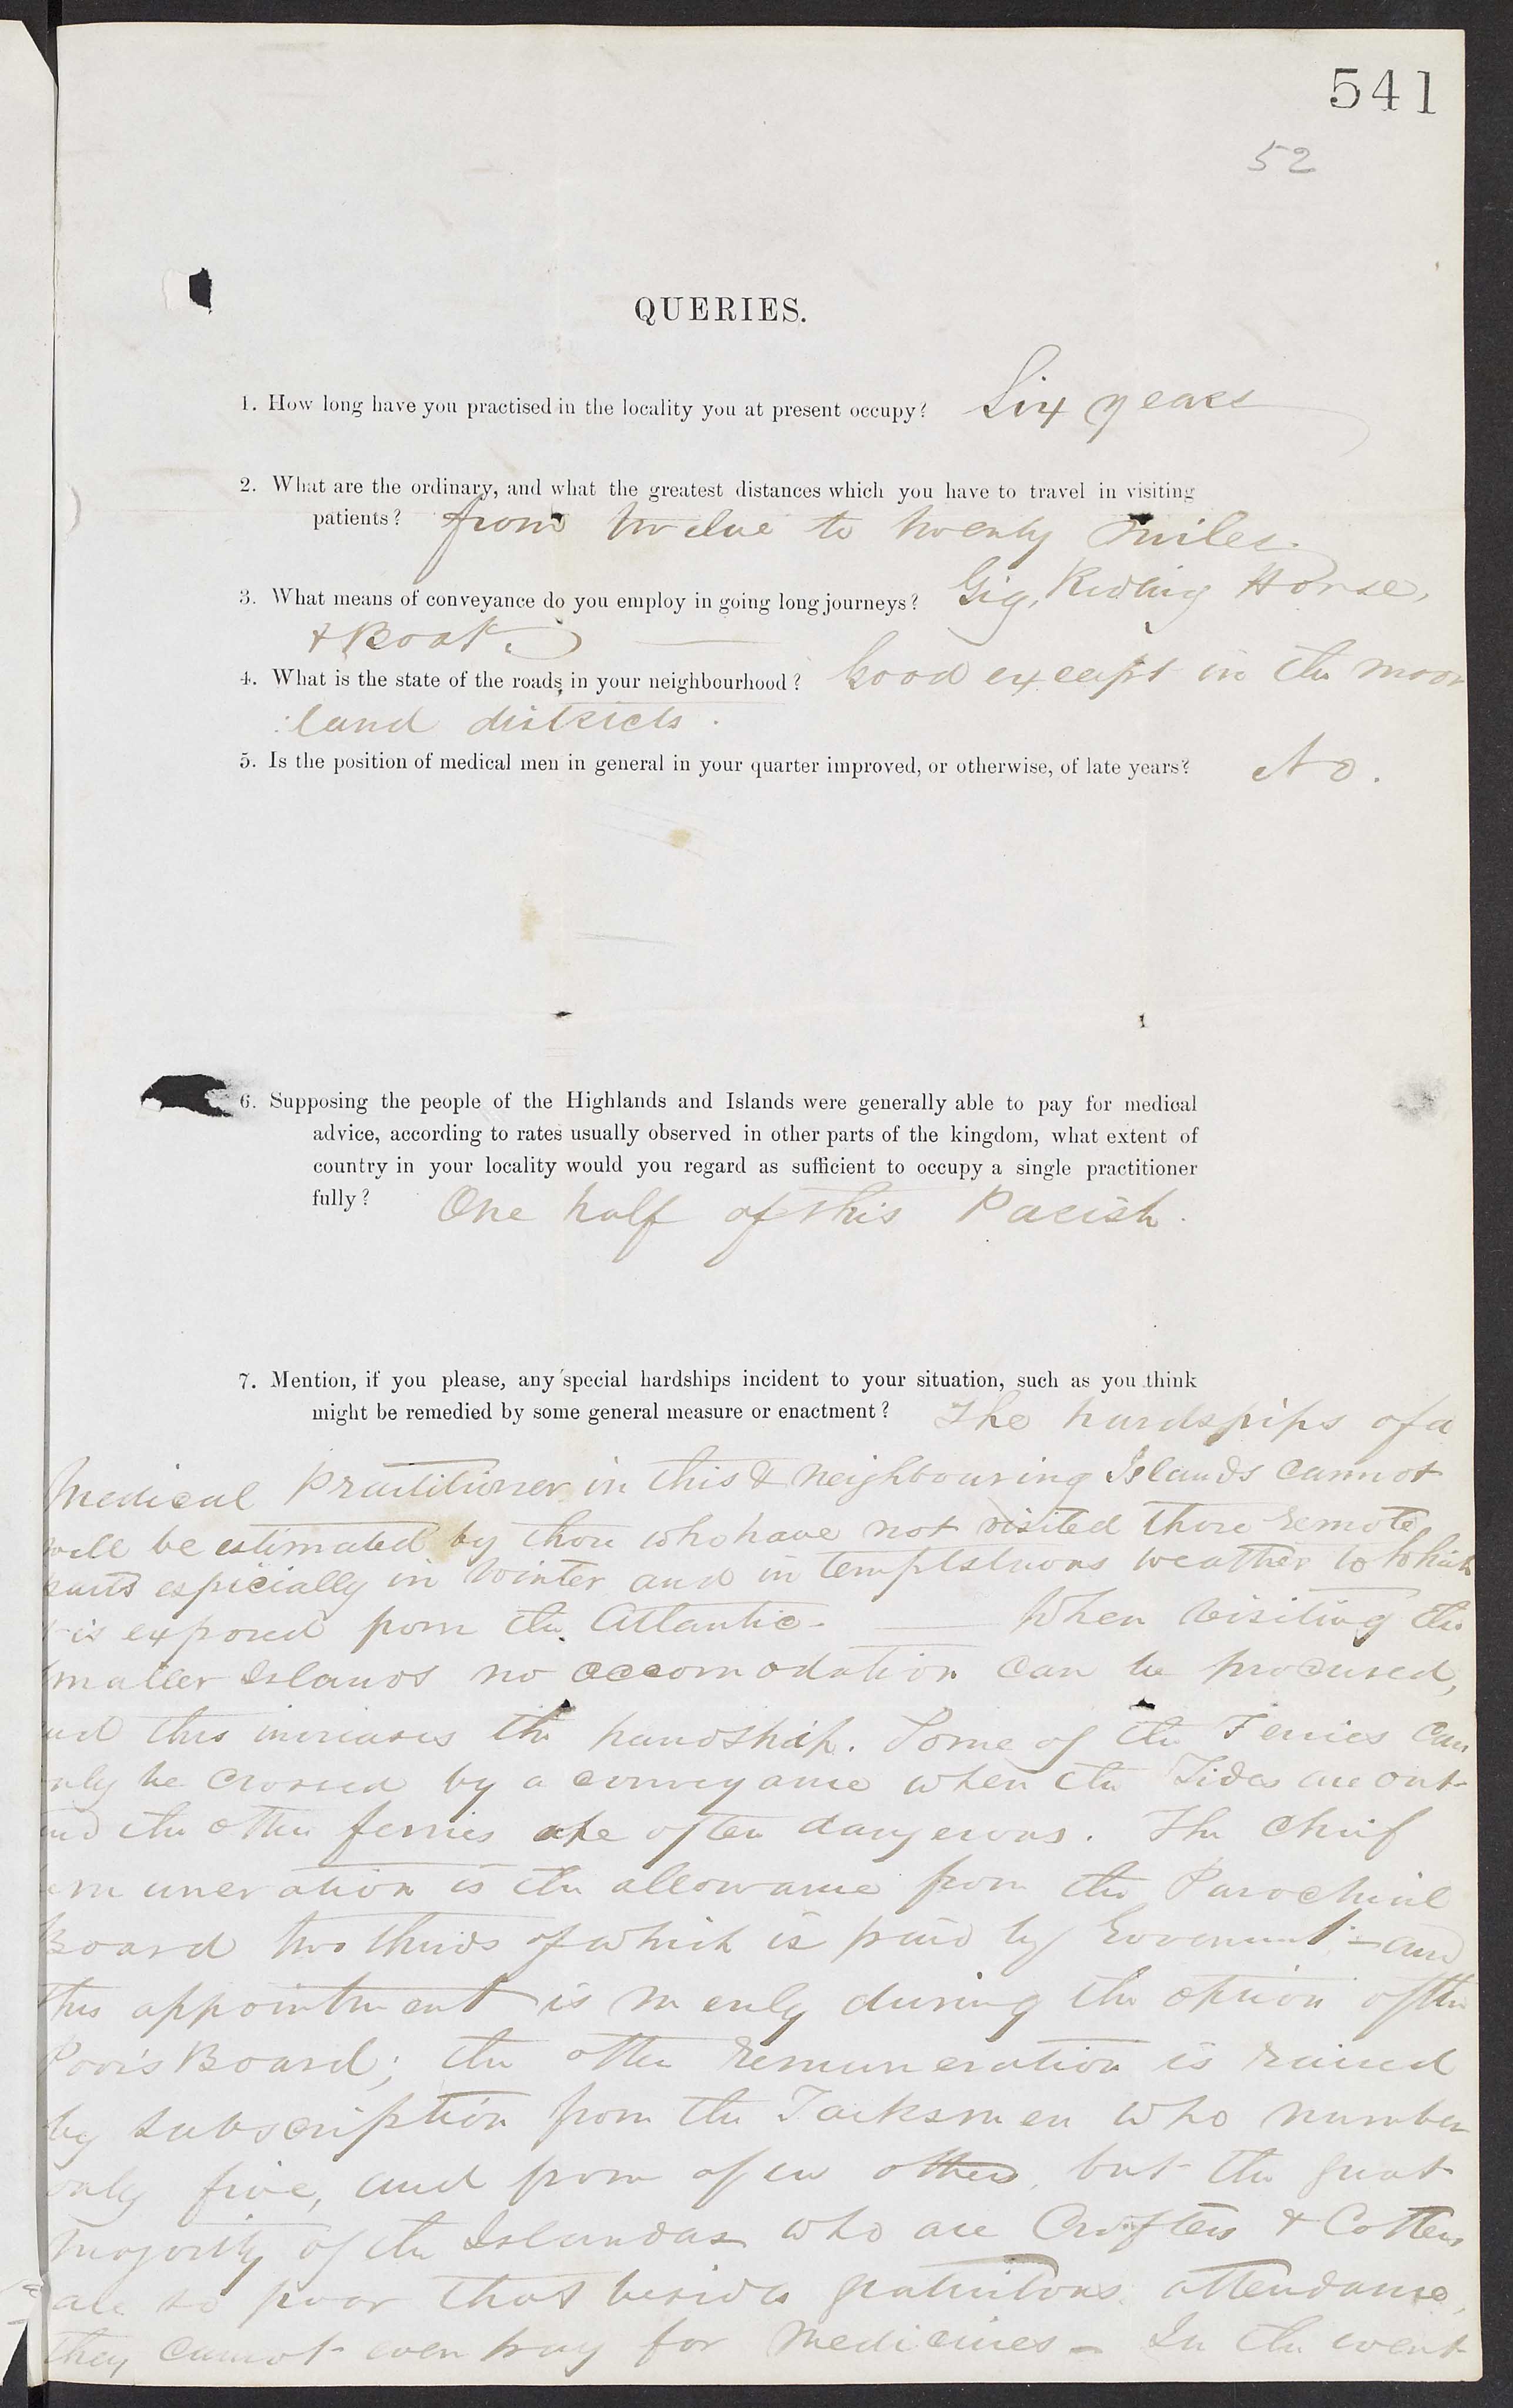 541
52
QUERIES.
1. How long have you practised in the locality you at present occupy? Six years
2. What are the ordinary, and what the greatest distances which you have to travel in visiting
patients? from twelve to twenty miles.
3. What means of conveyance do you employ in going long journeys? Gig, Riding Horse,
& Boat.
4. What is the state of the roads in your neighbourhood? Good except in the moor
land districts.
5. Is the position of medical men in general in your quarter improved, or otherwise, of late years? No.
6. Supposing the people of the Highlands and Islands were generally able to pay for medical
advice, according to rates usually observed in other parts of the kingdom, what extent of
country in your locality would you regard as sufficient to occupy a single practitioner
fully? One half of this Parish.
7. Mention, if you please, any special hardships incident to your situation, such as you think
might be remedied by some general measure or enactment? The hardships of a
Medical Practitioner in this & neighbouring Islands cannot
well be estimated by those who have not visited these remote
parts especially in Winter and in tempestuous weather to which
is exposed from the Atlantic. — When visiting the
smaller Islands no accomodation can be procured,
and this increases the hardship. Some of the Ferries can
only be crossed by a conveyance when the Tides are out
and the other ferries are often dangerous. The chief
remuneration is the allowance from the Parochial
Board two thirds of which is paid by Government – and
this appointment is merely during the option of the
Poor's Board; the other remuneration is raised
by subscription from the Tacksmen who number
only five, and from a few others, but the great
majority of the Islanders who are Crofters & Cotters
are so poor that besides gratuitous attendance,
they cannot even pay for Medicines – In the event